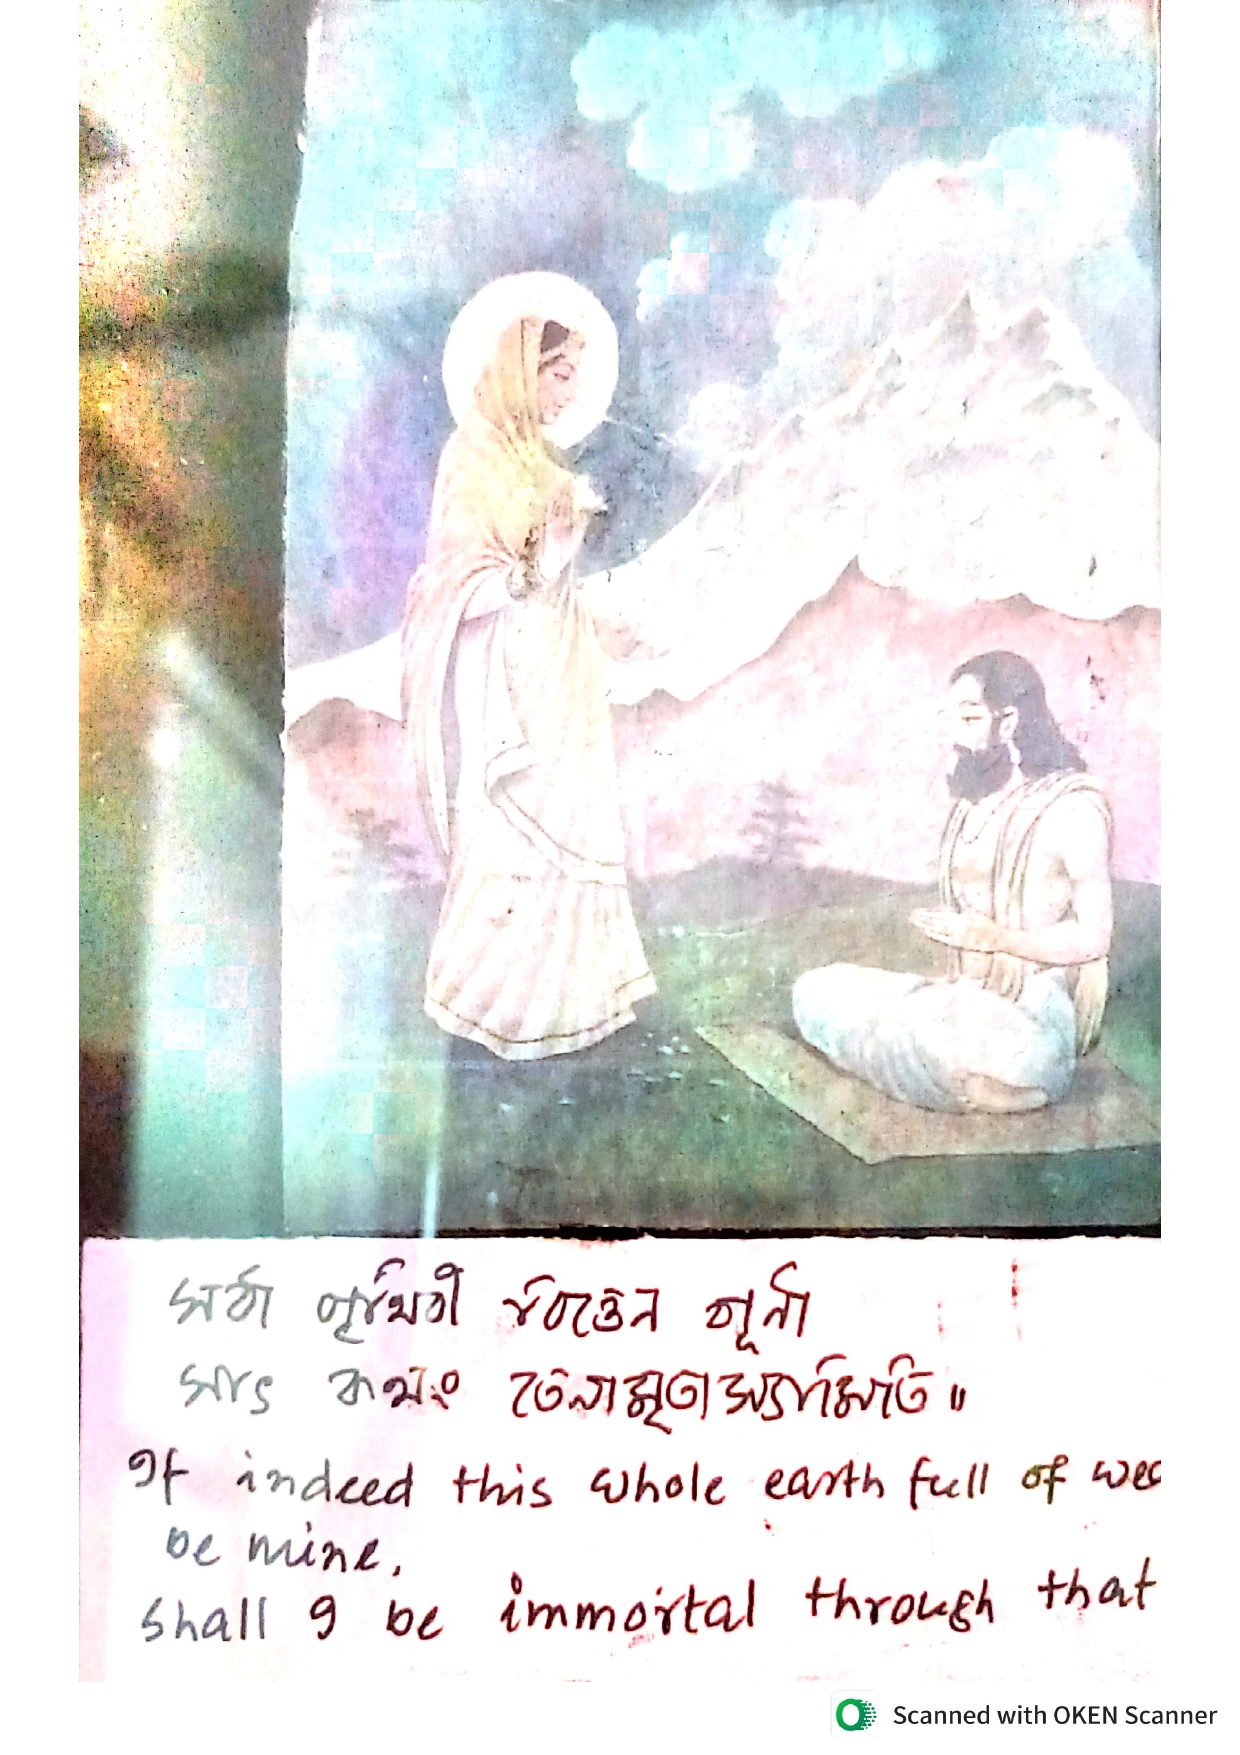 সর্বা পৃথিবী বিত্তেন পূর্না
স্যাৎ কথং তেনামৃতা
If indeed this whole earth full of
be mine,
shall I be immortal through that
Scanned with OKEN Scanner